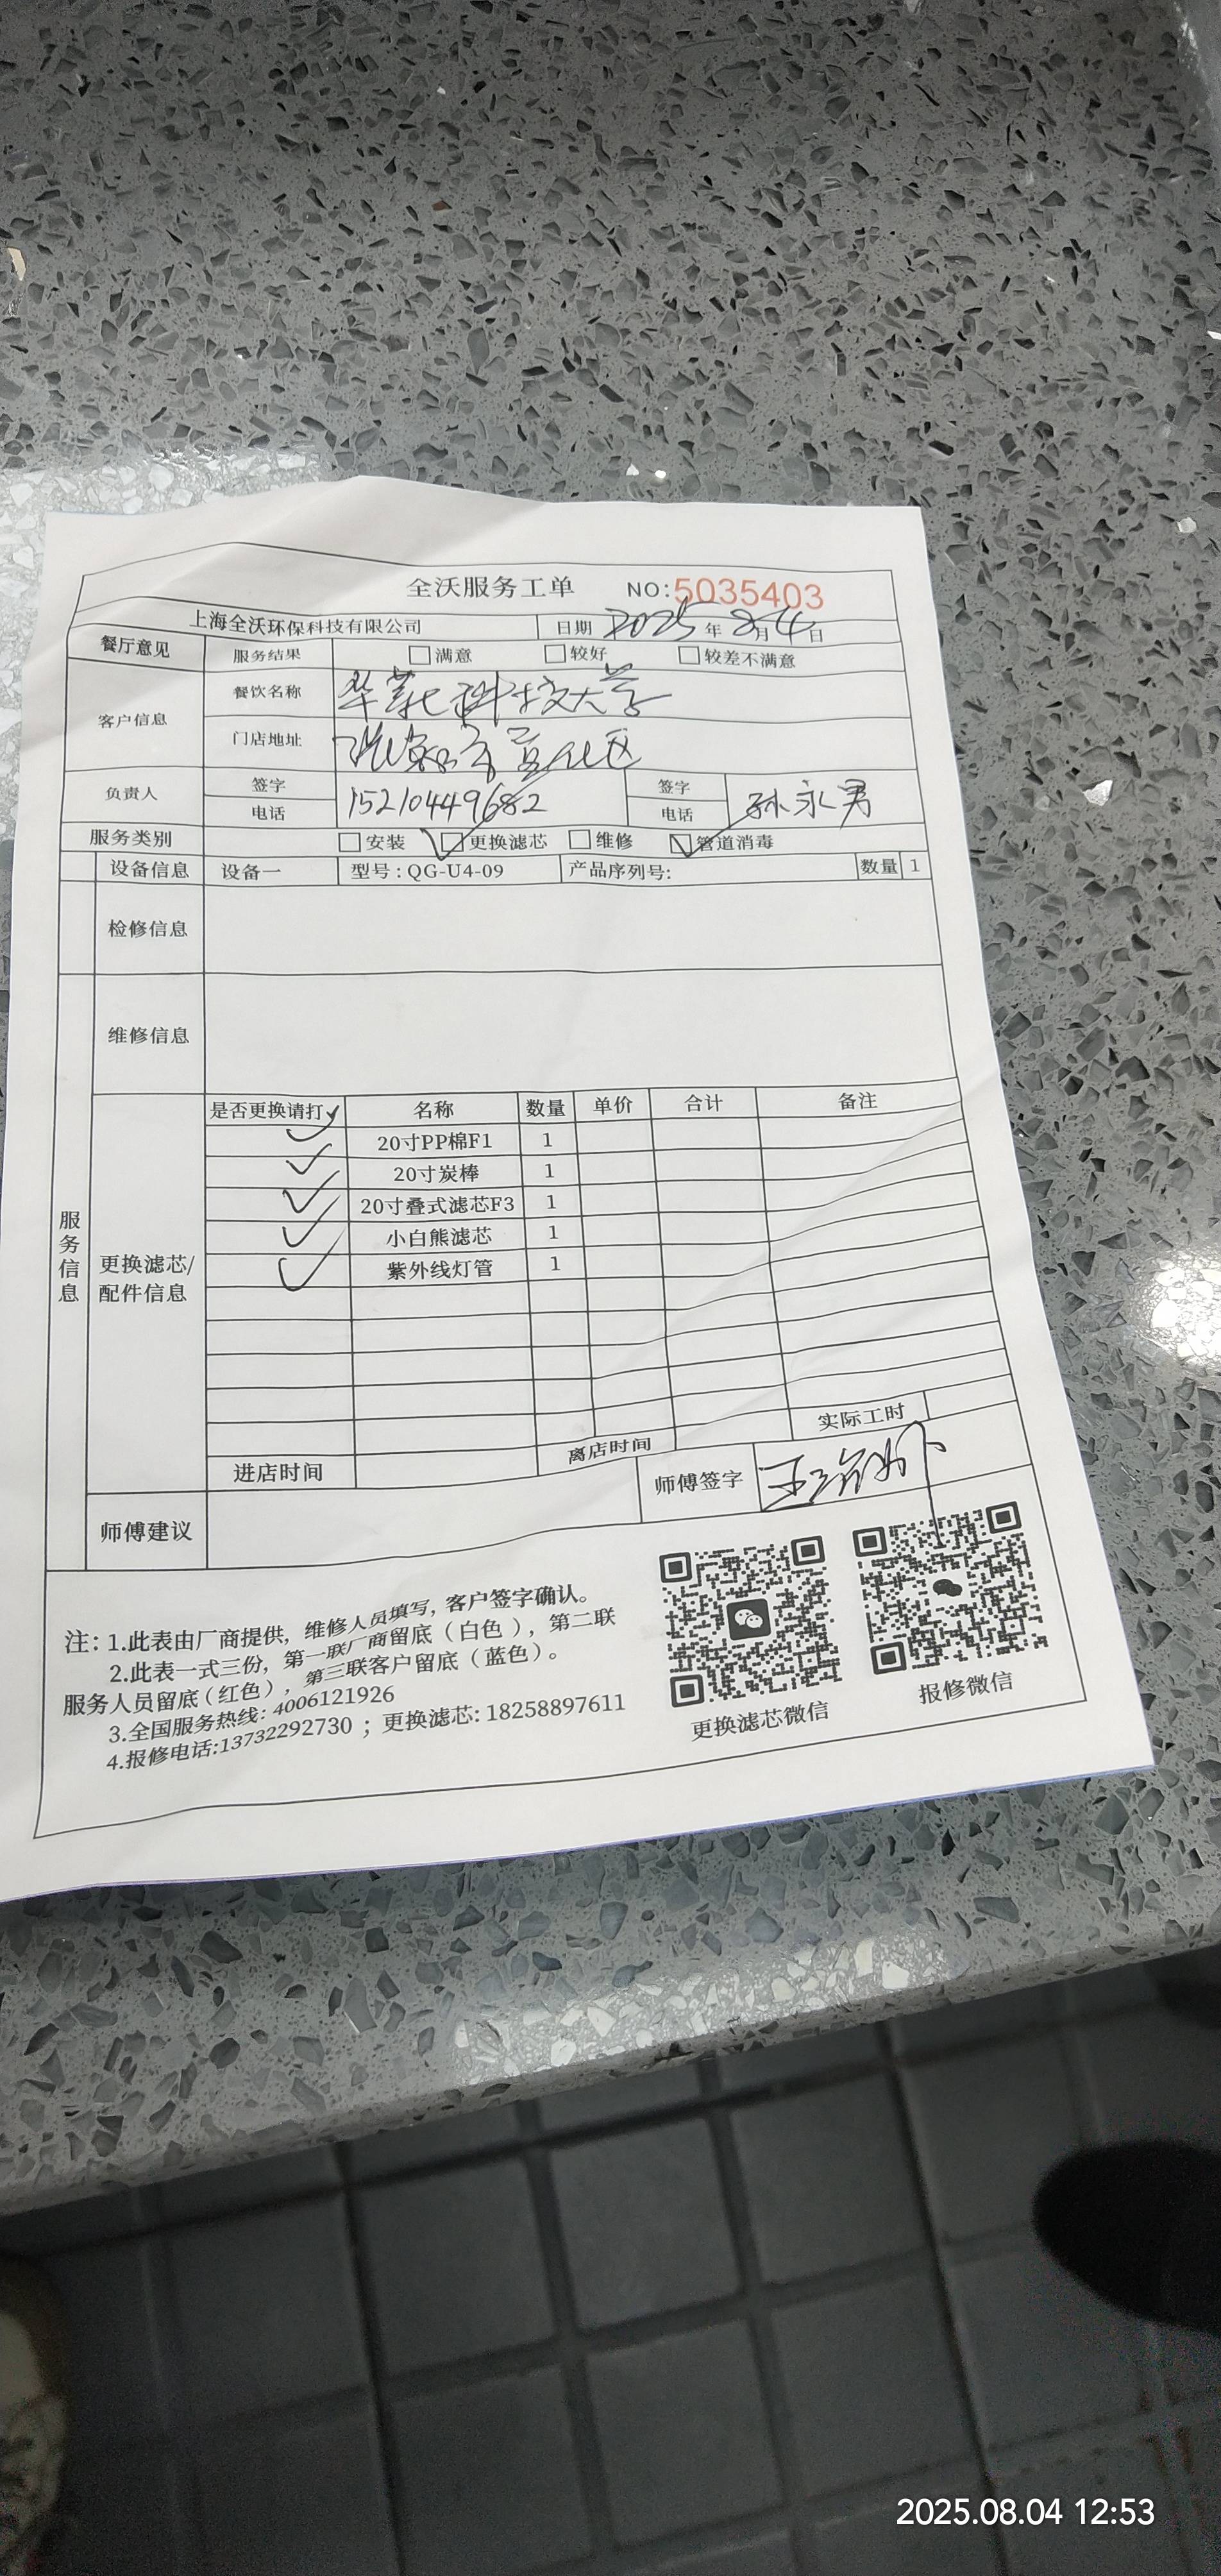 全沃服务工单 NO:5035403
上海全沃环保科技有限公司 日期 2025年8月4日
餐厅意见 服务结果 满意 较好 较差不满意
客户信息 餐饮名称 科技大学
门店地址 宣化区
负责人 签字 签字
电话 15210449682 电话 孙永男
服务类别 安装 更换滤芯 维修 管道消毒
设备信息 设备一 型号:QG-U4-09 产品序列号: 数量 1
检修信息
维修信息
服务信息
更换滤芯/配件信息
是否更换请打✓ 名称 数量 单价 合计 备注
✓ 20寸PP棉F1 1
✓ 20寸炭棒 1
✓ 20寸叠式滤芯F3 1
✓ 小白熊滤芯 1
✓ 紫外线灯管 1
进店时间 离店时间 实际工时
师傅建议 师傅签字
注: 1.此表由厂商提供, 维修人员填写, 客户签字确认。
2.此表一式三份, 第一联厂商留底(白色), 第二联
服务人员留底(红色), 第三联客户留底(蓝色)。
3.全国服务热线: 4006121926
4.报修电话:13732292730 ; 更换滤芯: 18258897611
更换滤芯微信 报修微信
2025.08.04 12:53